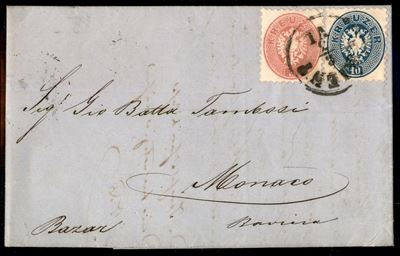 KREUZER
KREUZER
10
Sigr Gio Batta Tambosi
Monaco
Bazar Baviera